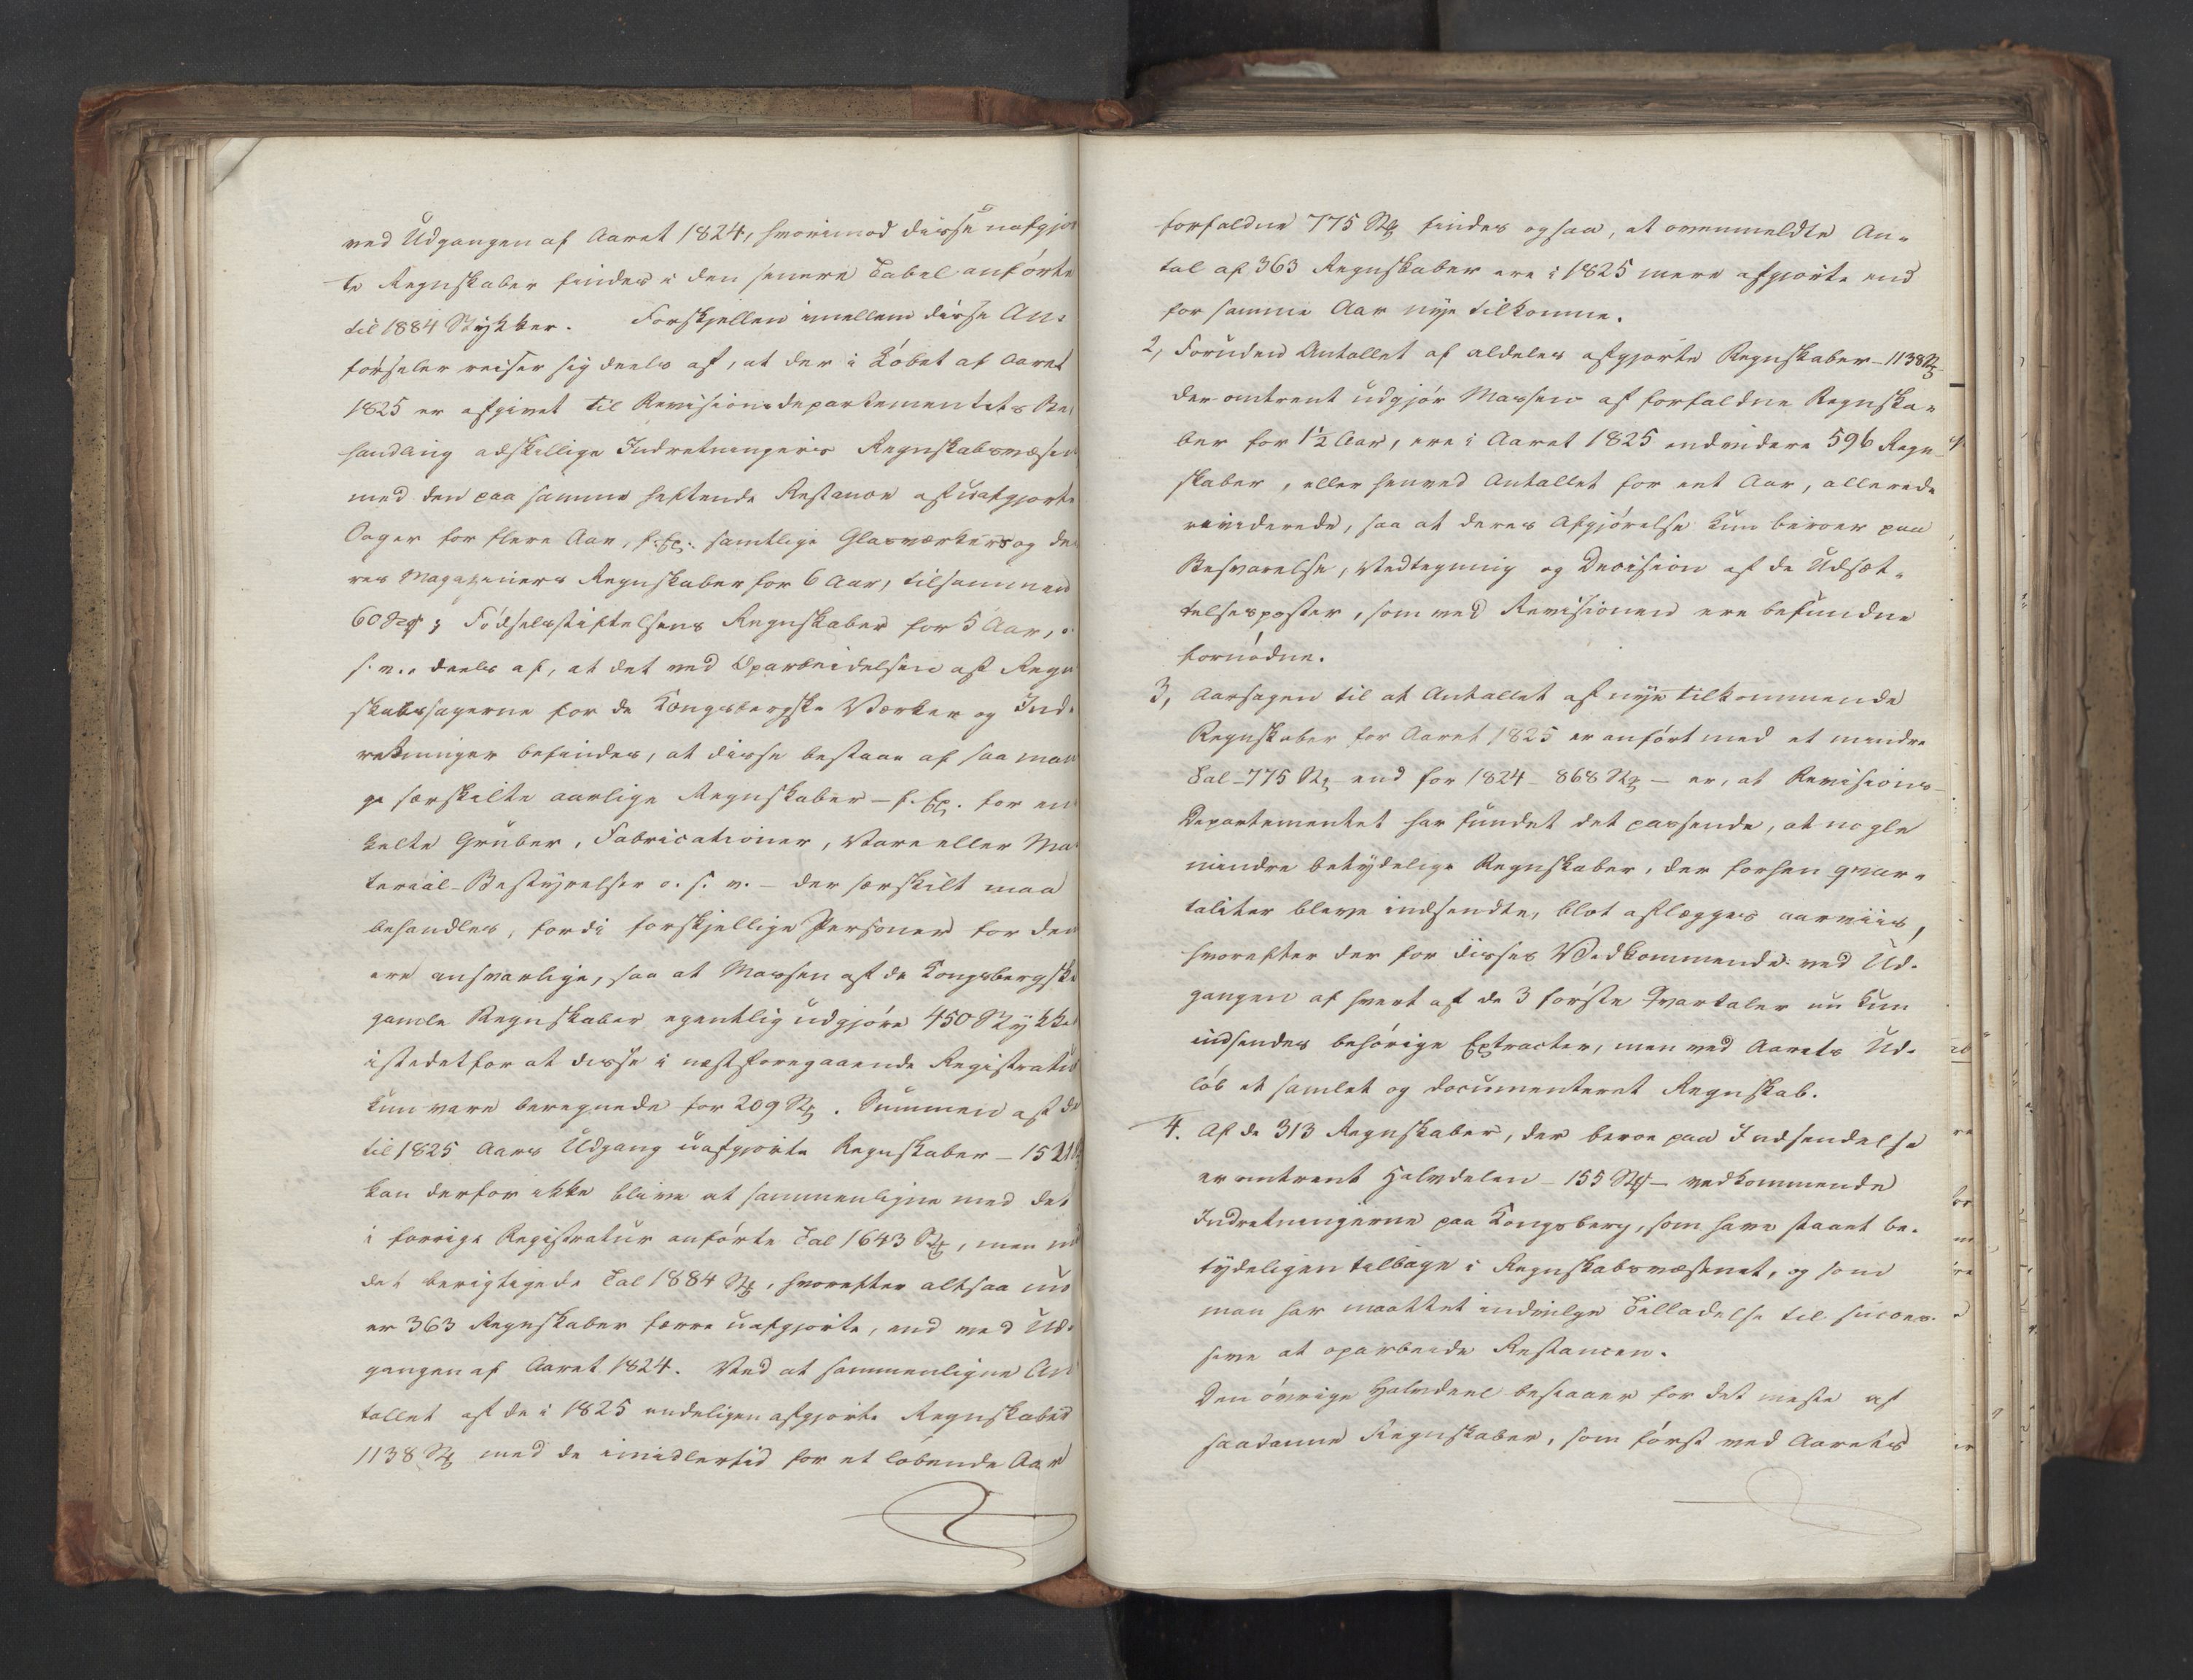 ved Udgangen af Aaret 1824, hvorimod disse uafgjor
te Regnskaber findes i den senere Tabel anførte
til 1884 Stykker. Forskjellen imellem disse An-
førseler reiser sig deels af, at der i Løbet af Aaret
1825 er afgivet til Revisionsdepartementets Be-
handling adskillige Indretningers Regnskabsvæsen
med den paa samme heftende Restance af uafgjorte
Sager for flere Aar, f. Ex. samtlige Glasværkers og de
res Magaziners Regnskaber for 6 Aar, tilsammen
60 Stk; Fødselsstiftelsens Regnskaber for 5 Aar, o.
s. v., deels af, at det ved Oparbeidelsen af Regn
skabssagerne for de Kongsbergske Værker og Ind-
retninger befindes, at disse bestaae af saa man
ge særskilte aarlige Regnskaber – f. Ex. for en
kelte Gruber, Fabricationer, Vare eller Ma
terial-Bestyrelser o. s. v. – der særskilt maa
behandles, fordi forskjellige Personer for dem
ere ansvarlige, saa at Massen af de Kongsbergske
gamle Regnskaber egentlig udgjøre 450 Stykker
istedetfor at disse i næstforegaaende Registratur
kun vare beregnede for 209 Stk. Summen af de
til 1825 Aars Udgang uafgjorte Regnskaber – 1521
kan derfor ikke blive at sammenligne med det
i forrige Registratur anførte Tal 1643 Stk, men med
det berigtigede Tal 1884 Stk, hvorefter altsaa nu
er 363 Regnskaber færre uafgjorte, end ved Ud-
gangen af Aaret 1824. Ved at sammenligne An
tallet af de i 1825 endeligen afgjorte Regnskaber
1138 Stk med de imidlertid for et løbende Aar
forfaldne 775 Stk findes ogsaa, at ovenmeldte An-
tal af 363 Regnskaber ere i 1825 mere afgjorte end
for samme Aar nye tilkomne.
2, Foruden Antallet af aldeles afgjorte Regnskaber – 1138 Stk –
der omtrent udgjør Massen af forfaldne Regnska-
ber for 1½ Aar, ere i Aaret 1825 endvidere 596 Regn-
skaber, eller henved Antallet for eet Aar, allerede
reviderede, saa at deres Afgjørelse kun beroer paa
Besvarelse, Vedtegning og Decision af de Udsæt-
telsesposter, som ved Revisionen ere befundne
fornødne.
3, Aarsagen til at Antallet af nye tilkommende
Regnskaber for Aaret 1825 er anført med et mindre
Tal – 775 Stk – end for 1824 – 868 Stk – er, at Revisions-
Departementet har fundet det passende, at nogle
mindre betydelige Regnskaber, der forhen qvar-
taliter bleve indsendte, blot aflægges aarviis,
hvorefter der for disses Vedkommende ved Ud-
gangen af hvert af de 3 første Qvartaler nu kun
indsendes behørige Extracter, men ved Aarets Ud-
løb et samlet og documenteret Regnskab.
4. Af de 313 Regnskaber, der beroe paa Indsendelse
er omtrent Halvdelen – 155 Stk – vedkommende
Indretningerne paa Kongsberg, som have staaet be-
tydeligen tilbage i Regnskabsvæsenet, og som
man har maattet indvilge Tilladelse til succes-
sive at oparbeide Restancen.
Den øvrige Halvdeel bestaaer for det meste af
saadanne Regnskaber, som først ved Aarets